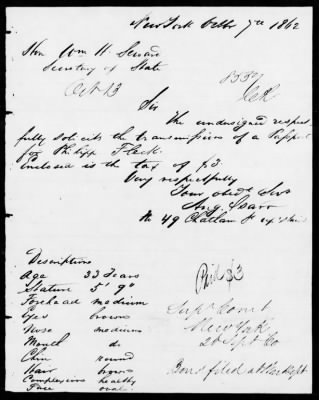 New York Octbr 7th 1862
Hon Wm H. Seward
Secretary of State
Oct 13
Sir
The undersigned respect
fully solicits the transmission of a Passport
for Philipp Fleck
Enclosed is the tax of $3.
Very respectfully
Your obedt Srvt
No 49 Chatham St
Paid $3
Descriptions
Age 33 Years
Stature 5' 9"
Forehead medium
Eyes brown
Nose medium
Mouth do
Chin round
Hair brown
Complexion healthy
Face oval
Supr Court
New York